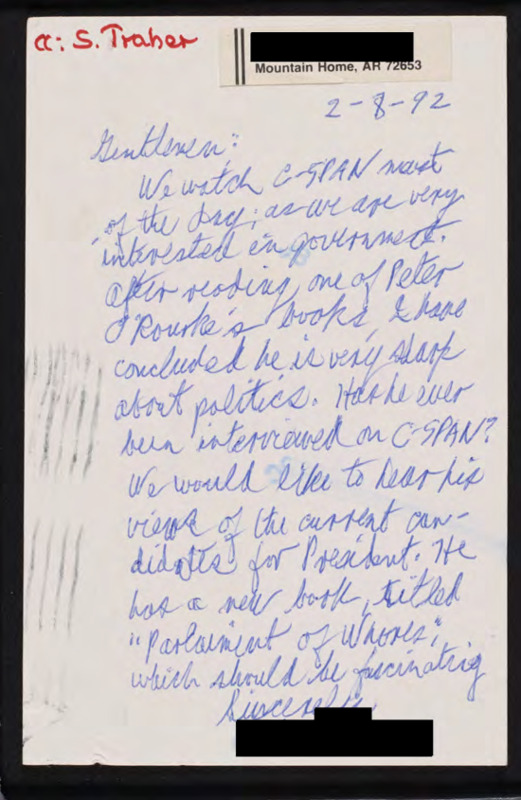 cc: S. Traber
Mountain Home, AR 72653
2-8-92
Gentlemen:
We watch C-SPAN most
of the day; as we are very
interested in government.
After reading one of Peter
O'Rourke's books, I have
concluded he is very sharp
about politics. Has he ever
been interviewed on C-SPAN?
We would like to hear his
views of the current can-
didates for President. He
has a new book, titled
"Parlaiment of Whores",
which should be fascinating
Sincerely,